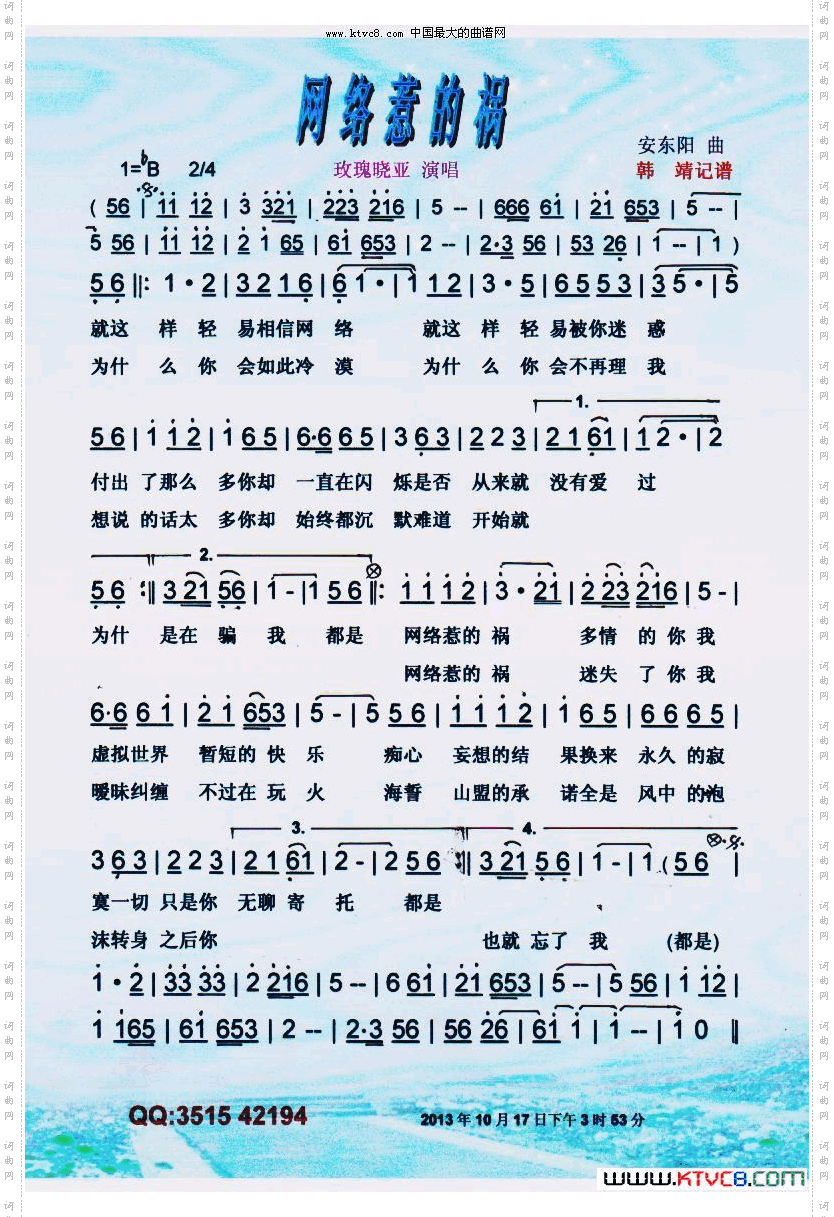 www.ktvc8.com 中国最大的曲谱网
网络惹的祸
安东阳 曲
1=♭B 2/4 玫瑰晓亚 演唱 韩 靖记谱
( 56 | 11 12 | 3 321 | 223 216 | 5 -- | 666 61 | 21 653 | 5 -- |
5 56 | 11 12 | 2 1 65 | 61 653 | 2 -- | 2·3 56 | 53 26 | 1 -- | 1 )
56 ‖: 1·2 | 3216 | 6 1· | 1 12 | 3·5 | 6553 | 3 5· | 5
就这 样轻 易相信网 络 就这 样轻 易被你迷 惑
为什 么你 会如此冷 漠 为什 么你 会不再理 我
1.
56 | 1 12 | 1 65 | 6·6 65 | 3 63 | 2 23 | 21 61 | 1 2· | 2
付出 了那么 多你却 一直在闪 烁是否 从来就 没有爱 过
想说 的话太 多你却 始终都沉 默难道 开始就
2.
56 :‖ 3 21 56 | 1 - | 1 56 ‖: 11 12 | 3·21 | 2 23 216 | 5 - |
为什 是在 骗 我 都是 网络惹的 祸 多情 的 你 我
网络惹的 祸 迷失 了 你 我
6·6 61 | 21 653 | 5 - | 5 56 | 11 12 | 1 65 | 66 65 |
虚拟世界 暂短的 快 乐 痴心 妄想的结 果换来 永久 的寂
暧昧纠缠 不过在 玩 火 海誓 山盟的承 诺全是 风中 的泡
3. 4.
3 63 | 2 23 | 21 61 | 2 - | 2 56 :‖ 3 21 56 | 1 - | 1 (56 |
寞一切 只是你 无聊 寄 托 都是
沫转身 之后你 也就 忘了 我 (都是)
1·2 | 33 33 | 2 216 | 5 -- | 6 61 | 21 653 | 5 -- | 5 56 | 1 12 |
1 165 | 61 653 | 2 -- | 2·3 56 | 56 26 | 61 1 | 1 -- | 1 0 ‖
QQ:3515 42194
2013 年 10 月 17 日下午 3 时 53 分
www.KTVC8.com
词曲网